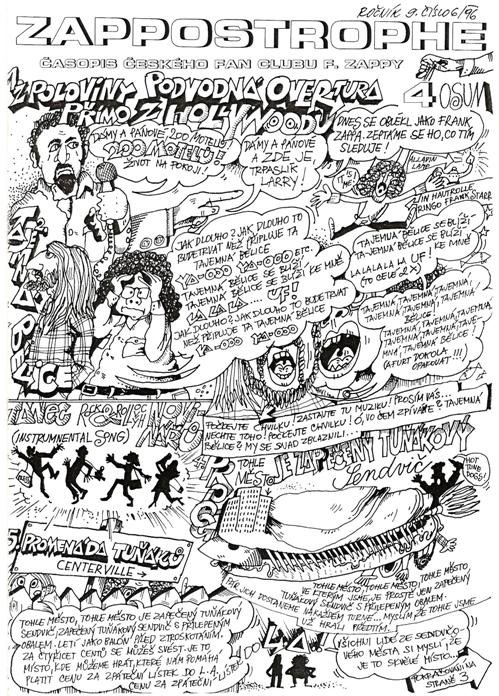 ROČNÍK 9. ČÍSLO 6/96
ZAPPOSTROPHE
ČASOPIS ČESKÉHO FAN CLUBU F. ZAPPY
1. Z POLOVINY PODVODNÁ OVERTURA
PŘÍMO Z HOLLYWOODU
4 OSUM
DÁMY A PÁNOVÉ, 200 MOTELŮ!
200 MOTELŮ!
ŽIVOT NA POKOJI!
DÁMY A PÁNOVÉ
A ZDE JE,
TRPASLÍK
LARRY!
DNES SE OBLÉKL JAKO FRANK
ZAPPA. ZEPTÁME SE HO, CO TÍM
SLEDUJE!
JAK DLOUHO? JAK DLOUHO TO
BUDE TRVAT NEŽ PŘIPLUJE TA
TAJEMNÁ BĚLICE
ETC.
TAJEMNÁ BĚLICE SE BLÍŽÍ
TAJEMNÁ BĚLICE SE BLÍŽÍ KE MNĚ
LA LA LA... UF!
JAK DLOUHO? JAK DLOUHO TO BUDE TRVAT
NEŽ PŘIPLUJE TA TAJEMNÁ BĚLICE
TAJEMNÁ BĚLICE SE BLÍŽÍ
TAJEMNÁ BĚLICE SE BLÍŽÍ
KE MNĚ
LA LA LA LA LA UF!
(TO CELÉ 2X)
TAJEMNÁ, TAJEMNÁ, TAJEMNÁ,
TAJEMNÁ, TAJEMNÁ, TAJEMNÁ
BĚLICE!
TAJEMNÁ, TAJEMNÁ, TAJEMNÁ,
TAJEMNÁ BĚLICE!
(AFURT DOKOLA
OPAKOVAT!!!)
TAJEMNÁ BĚLICE
POČKEJTE CHVILKU! ZASTAVTE TU MUZIKU! PROSÍM VÁS...
NECHTE TOHO! POČKEJTE CHVILKU! Ó, VO ČEM ZPÍVÁTE? TAJEMNÁ
BĚLICE? MY SE SNAD ZBLÁZNILI...
TANEC ROCK
(INSTRUMENTAL SONG)
TOHLE
MĚSTO
JE ZAPEČENÝ TUŇÁKOVÝ
Sendvič
HOT
TUNO
DOGS!
5. PROMENÁDA TUŇÁKŮ
CENTERVILLE →
TOHLE MĚSTO, TOHLE MĚSTO JE ZAPEČENÝ TUŇÁKOVÝ
SENDVIČ, ZAPEČENÝ TUŇÁKOVÝ SENDVIČ S PŘILEPENÝM
OBALEM. LETÍ JAKO BALÓN PŘED ZTROSKOTÁNÍM.
ZA ČTYŘICET CENTŮ SE MŮŽEŠ SVÉST. JE TO
MÍSTO, KDE MŮŽEME HRÁT, KTERÉ NÁM POMÁHÁ
PLATIT CENU ZA ZPÁTEČNÍ LÍSTEK DO L.A.
CENU ZA ZPÁTEČNÍ LÍSTEK
TOHLE MĚSTO, TOHLE MĚSTO, TOHLE MĚSTO
VE KTERÝM JSME, JE PROSTĚ JEN ZAPEČENÝ
TUŇÁKOVÝ SENDVIČ S PŘILEPENÝM OBALEM.
PÁR JICH DOSTANEME NA KAŽDÉM TURNÉ... MYSLÍM ŽE TOHLE JSME
UŽ HRÁLI PŘEDTÍM...
VŠICHNI LIDÉ ZE SENDVIČO-
VÉHO MĚSTA SI MYSLÍ, ŽE
JE TO SKVĚLÉ MÍSTO...
POKRAČOVÁNÍ NA
STRANĚ 3